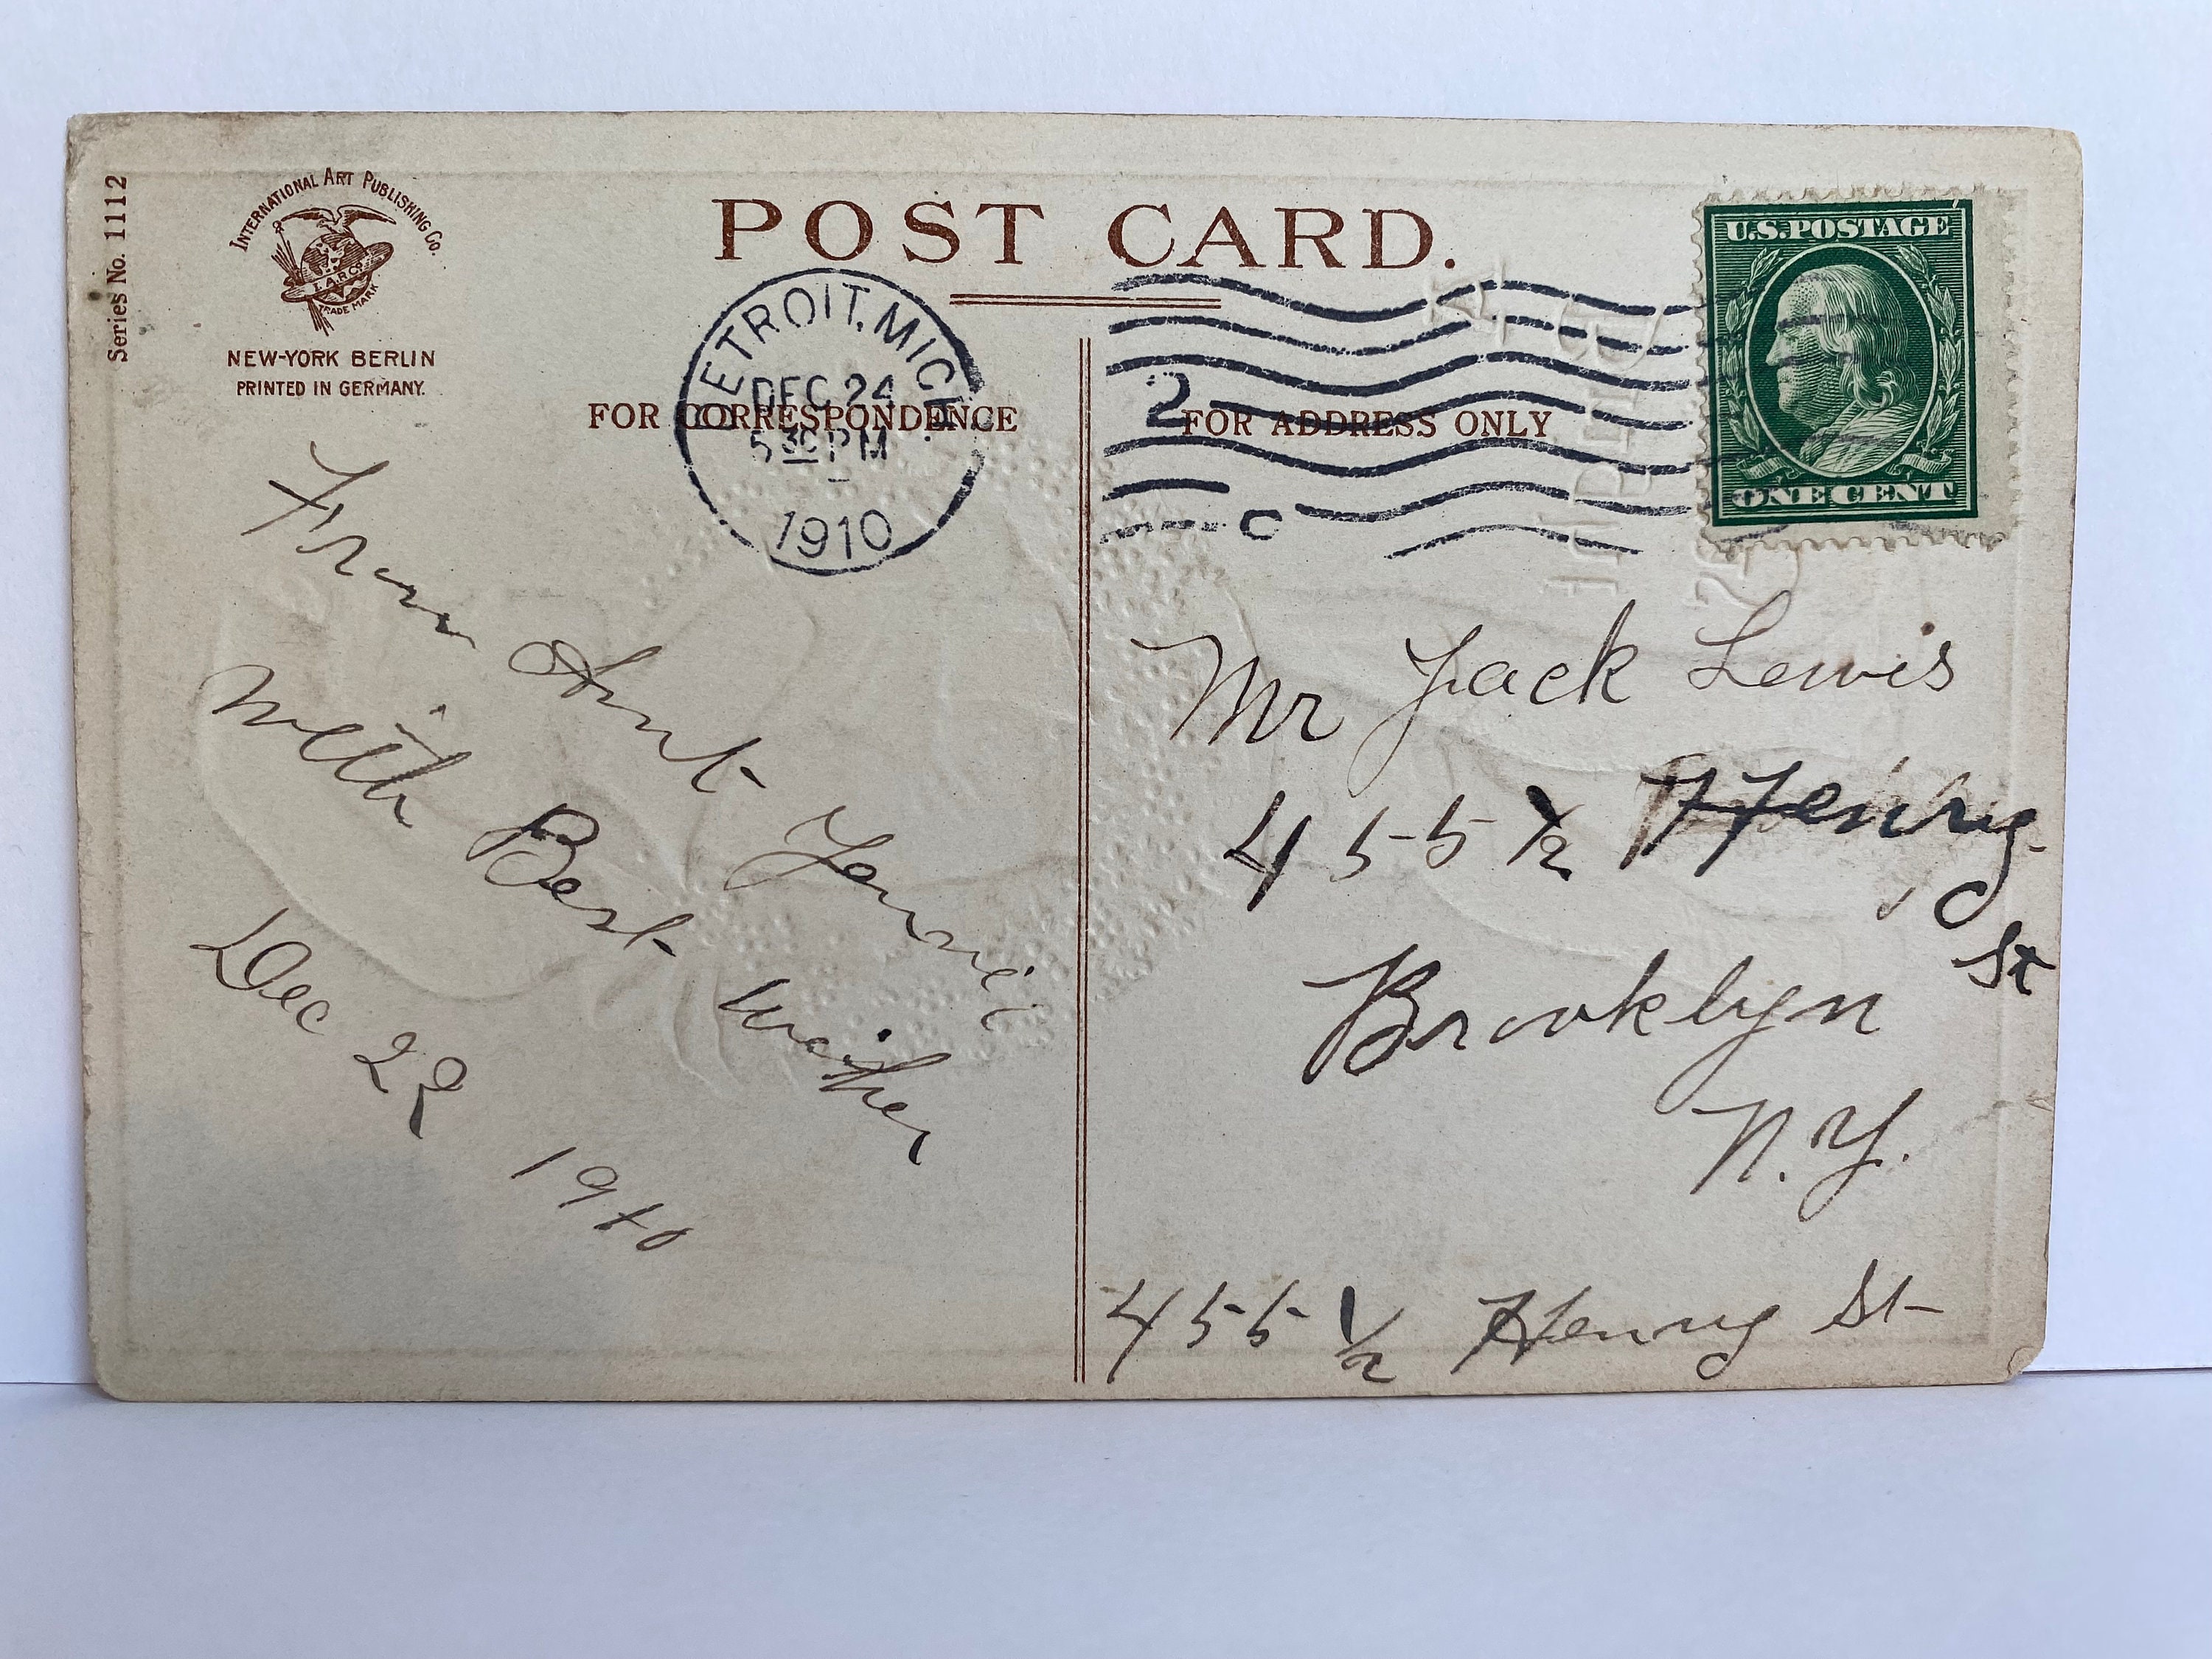 Series No. 1112
INTERNATIONAL ART PUBLISHING CO.
I.A.P.CO.
TRADE MARK
NEW-YORK BERLIN
PRINTED IN GERMANY.
POST CARD.
U.S. POSTAGE
ONE CENT
DETROIT, MICH.
DEC 24
5 30 PM
1910
2
C
FOR CORRESPONDENCE
FOR ADDRESS ONLY
From Aunt Jennie
With Best Wishes
Dec 22 1910
Mr Jack Lewis
455 1/2 Henry
St
Brooklyn
N.Y.
455 1/2 Henry St